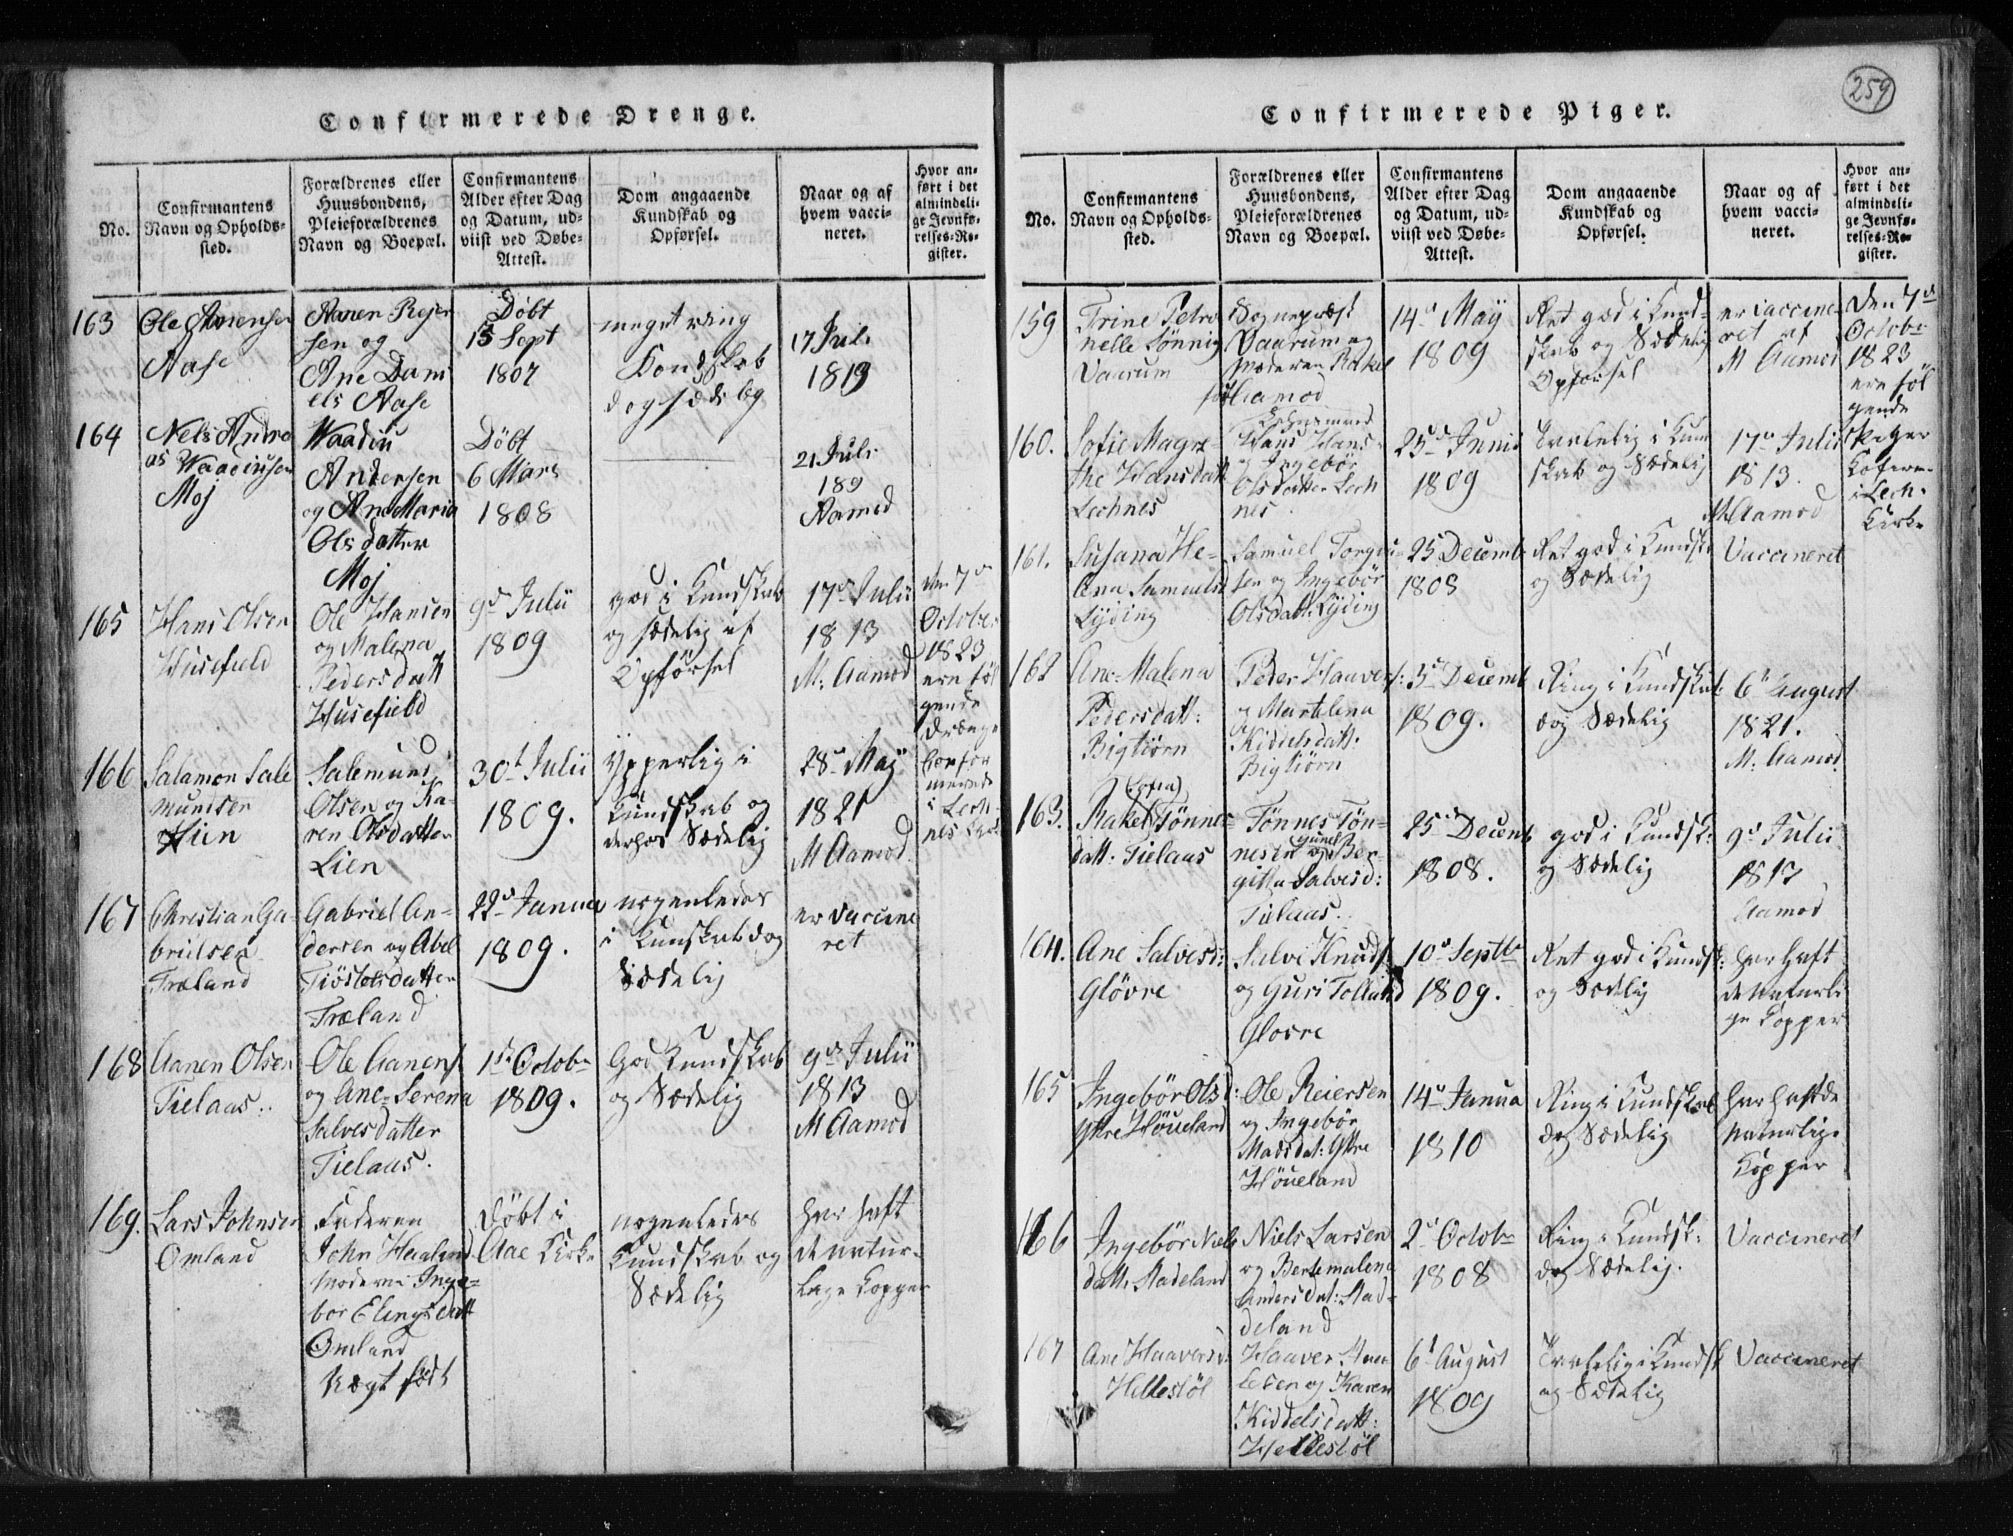 Confirmerede Drenge.
No.
Confirmantens
Navn og Opholds-
sted.
Forældrenes eller
Huusbondens,
Pleieforældrenes
Navn og Boepæl.
Confirmantens
Alder efter Dag
og Datum, ud-
viist ved Døbe-
Attest.
Dom angaaende
Kundskab og
Opførsel.
Naar og af
hvem vacci-
neret.
Hvor an-
ført i det
almindeli-
ge Jevnfø-
relses-Re-
gister.
163
Ole Aanensen
Aase
Aanen Rejer
sen og
Ane Dani
els Aase
Døbt
13 Sept
1807
meget ring
Kondskab
dog sædelig
17 Juli
1819
164
Nels Andre
as Waadiusen
Moj
Waadiu
Andersen
og AneMaria
Ols datter
Moj
Døbt
6 Mars
1808
21 Juli
189
Aamod
165
Hans Olsen
Husefield
Ole Hansen
og Malena
Pedersdatt
Husefield
9d Julii
1809
god i Kundskab
og sædelig af
Opførsel
17d Julii
1813
M: Aamod
den 7d
October
1823
ere føl
gende
Drænge
Confir
merede
i Lech-
nes Kirke
166
Salamon Sale
mundsen
Lien
Salemund
Olsen og Ka-
ren Olsdatter
Lien
30d Julii
1809.
Ypperlig i
Kundskab og
derhos Sædelig
28d Maÿ
1821
M Aamod.
167
Christian Ga-
brielsen
Fræland
Gabriel An-
dersen og Abel
Tiöstelsdatter
Fræland
22d Janua
1809.
nogenledes
i Kunskab dog
Sædelig
er Vaccine
ret
168
Aanen Olsen
Tielaas.
Ole Aanens.
og Ane=Serena
Salvesdatter
Tielaas.
1d Octobr
1809.
God Kundskab
og Sædelig
9d Julii
1813
M Aamod
169.
Lars Johnsen
Omland
Faderen
John Haaland
Moderen Inge-
bor Elingsdatt
Omland
Uægt født
Døbt i
Aae Kirke
nogenledes
Kundskab og
Sædelig
har haft
de natur-
lige Kopper
Confirmerede Piger.
259
No.
Confirmantens
Navn og Opholds-
sted.
Forældrenes eller
Huusbondens,
Pleieforældrenes
Navn og Boepæl.
Confirmantens
Alder efter Dag
og Datum, ud-
viist ved Døbe-
Attest.
Dom angaaende
Kundskab og
Opførsel.
Naar og af
hvem vacci-
neret.
Hvor an-
ført i det
almindeli-
ge Jevnfø-
relses-Re-
gister.
159
Trine Petro
nelle Lönnig
Vaarum
Sognepræst
Vaarum og
Moderen Rakel
Aamod
14d Maÿ
1809
Ret god i Kund-
skab og Sædelig
Opførsel
er Vaccine-
ret af
M Aamod
Den 7d
Octobr
1823
ere føl
gende
Piger
Cofirm.
i Lech-
Kirke
160.
Sofie Magre
the Hansdatt
Lechnes
Hans Hans-
og Ingebör
Olsdatter Lech
nes
25d Junii
1809
Traelelig i Kun
skab og Sædelig
17d Julii
1813.
M Aamod
161.
Susana He-
Ana Samuelsd
Lyding
Samuel Torgiu-
sen og Ingebör
Olsdatt: Lyding
25 Decemb
1808
Ret god i Kundsk
og Sædelig
Vaccineret
162
Ane=Malena
Pedersdatt:
Bigtiörn
Peder Haavers:
og Martelena
Kiddelsdatt:
Bigtiörn
3d Decemb
1809.
Ring i Kundskab
dog Sædelig
6d August
1821.
M: Aamod.
163.
(Sofia)
Rakel Tönnes=
datt: Tielaas
Tönnes Tön-
nesen og Ber-
gitta Salvesd:
Tielaas.
25d Decemb
1808.
god i Kundsk:
og Sædelig
9d Julii
1817
Aamod
164.
Ane Salvesd:
Glövre
Salve Knuds.
og Guri Tollaksd
Glovre
10d Septbr
1809.
Ret god i Kundsk:
og Sædelig
har haft
de Naturli
ge Kopper
165
Ingebör Olsd:
Yttre Höueland
Ole Reiersen
og Ingebör
Madsdat: Yttre
Höueland
14d Janua
1810
Ring i Kundskab
dog Sædelig
har haft de
Naturlige
Kopper
166
Ingebör Niels
datt: Stadeland
Niels Larsen
og Bertemalena
Andersdat: Stad-
deland
2d Octobr
1808
Ring i Kundsk:
dog Sædelig.
Vaccineret
167
Ane Haaversd:
Hellestöl
Haaver
og Karen
Kiddelsdatt:
Hellestöl
6d August
1809
Traelelig i Kundsk
og Sædelig
Vaccineret